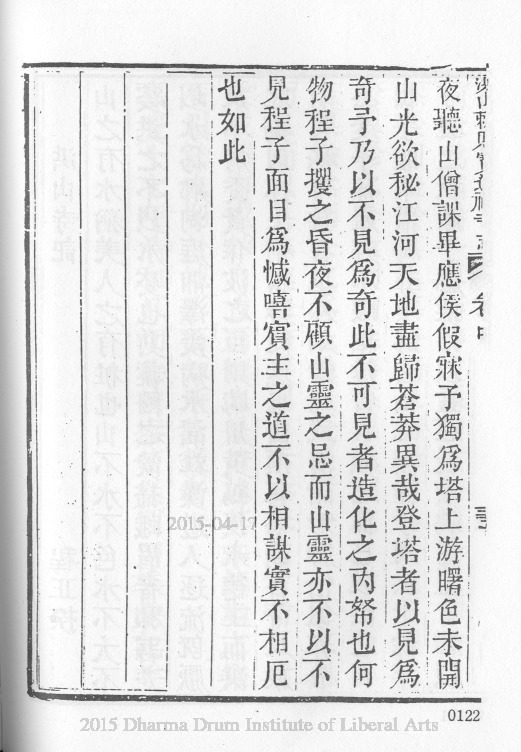 夜聽山僧課畢應侯假寐予獨爲塔上游曙色未開
山光欲秘江河天地盡歸蒼莽異哉登塔者以見爲
奇予乃以不見爲奇此不可見者造化之內帑也何
物程子攫之昏夜不顧山靈之忌而山靈亦不以不
見程子面目爲憾嘻賓主之道不以相謀實不相厄
也如此
2015-04-17
0122
2015 Dharma Drum Institute of Liberal Arts